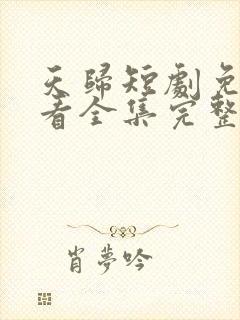 天歸短劇免
看全集完整
肖夢吟